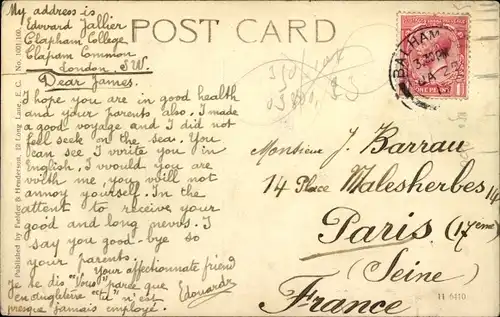 My address is
Edward Jallier
Clapham College
Clapham Common
London S.W.
POST CARD
Dear James.
I hope you are in good health
and your parents also. I made
a good voyage and I did not
fell seek on the sea. You
can see I vorite you in
English, I vvould you are
vvith me you vvill not
annoy yourself. In the
attent to receive your
good and long nevvs. I
say you good-bye so
your parents.
your affectionnate friend
Edouard
Je he dis "Vous" parce que
en angleterre "tu" n'est
presque jamais employé.
BALHAM
3.20 PM
JA 24
ONE PENNY
Monsieur J. Barrau
14 Place Malesherbes 14
Paris (17eme)
(Seine)
France
Published by Fielder & Henderson, 12 Long Lane, E.C. No. 1001-100.